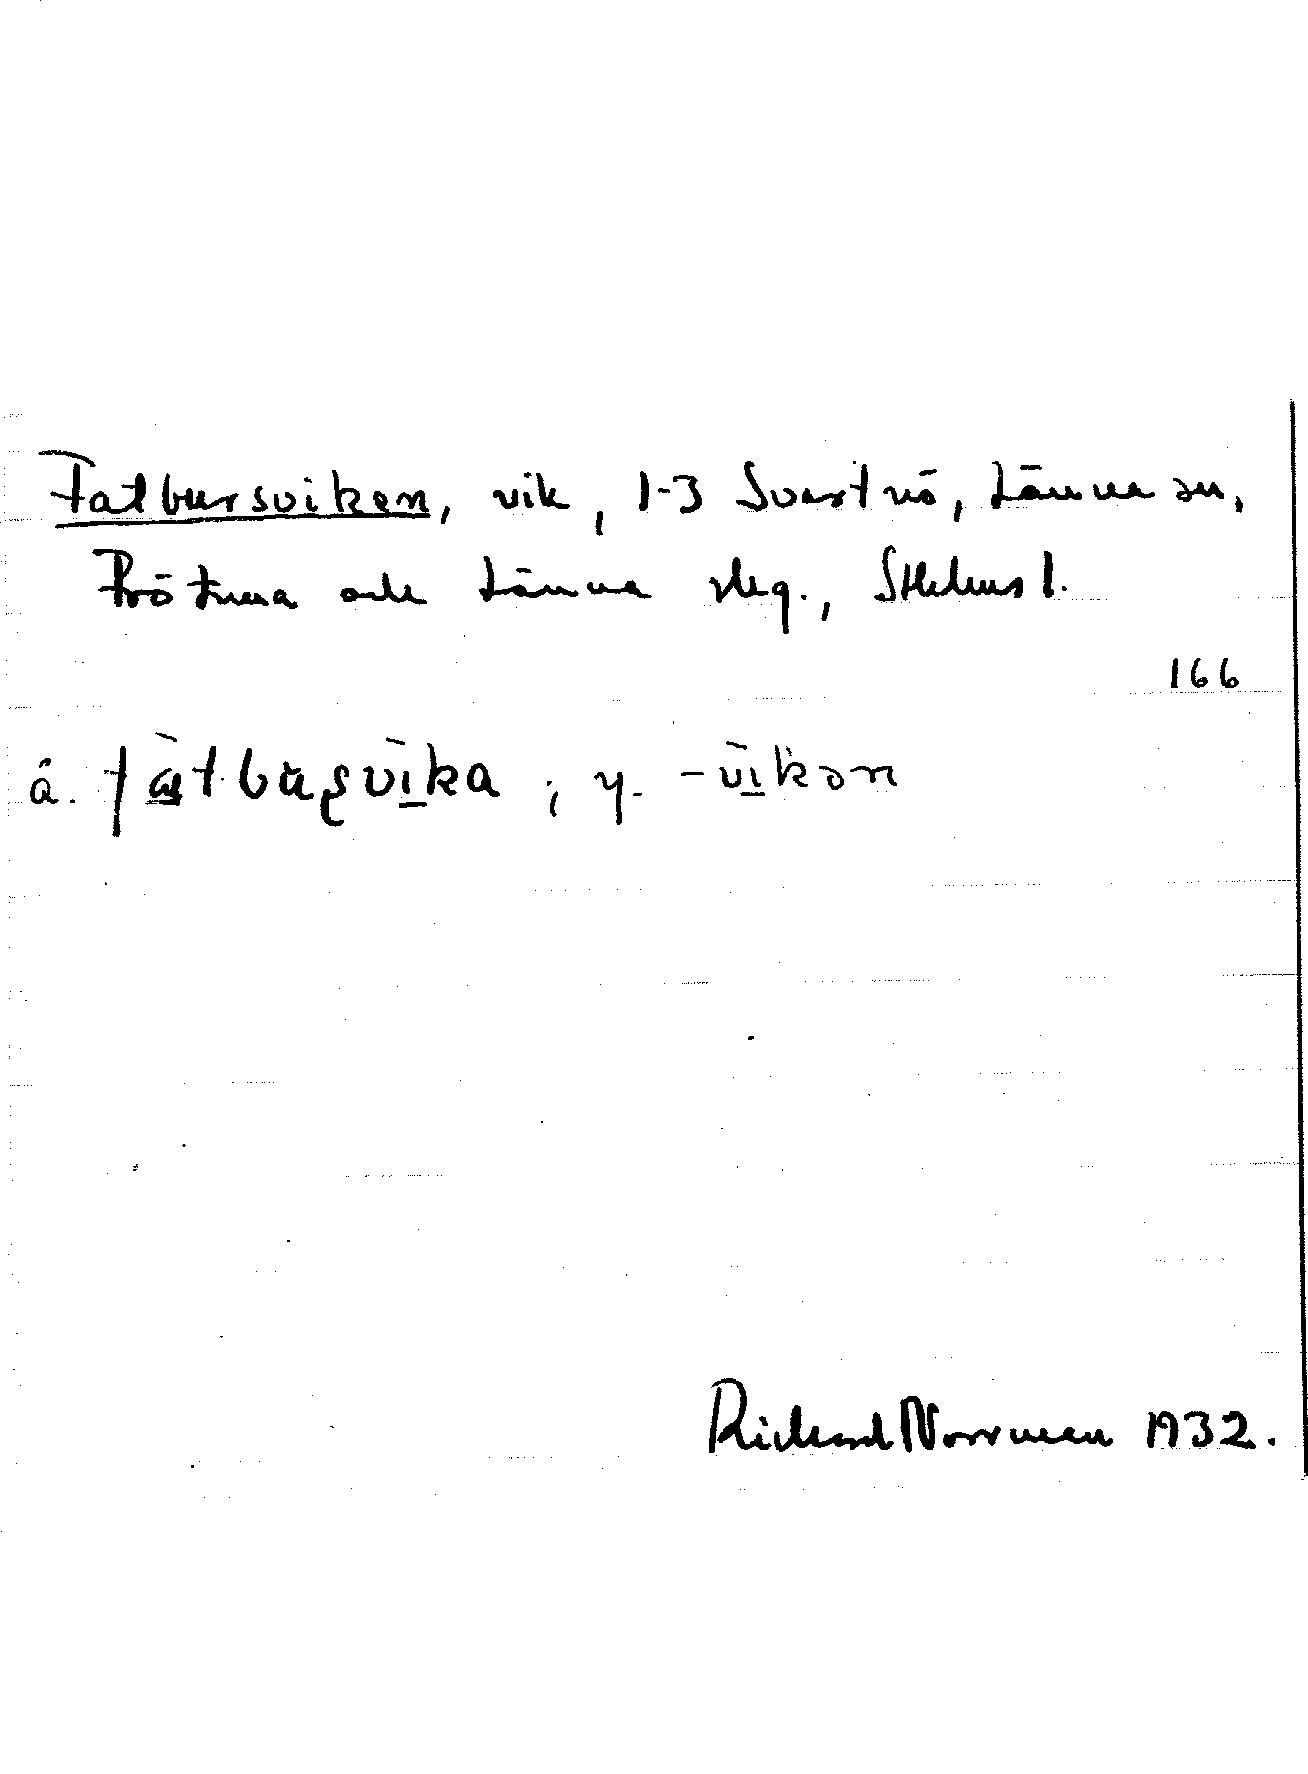 Fatbursviken, vik, 1-3 Svartnö, Länna sn,
Frötuna och Länna skg., Sthlms l.
166
ä. fàtbuʂvìka ; y. -vìkən
Richard Norrman 1932.